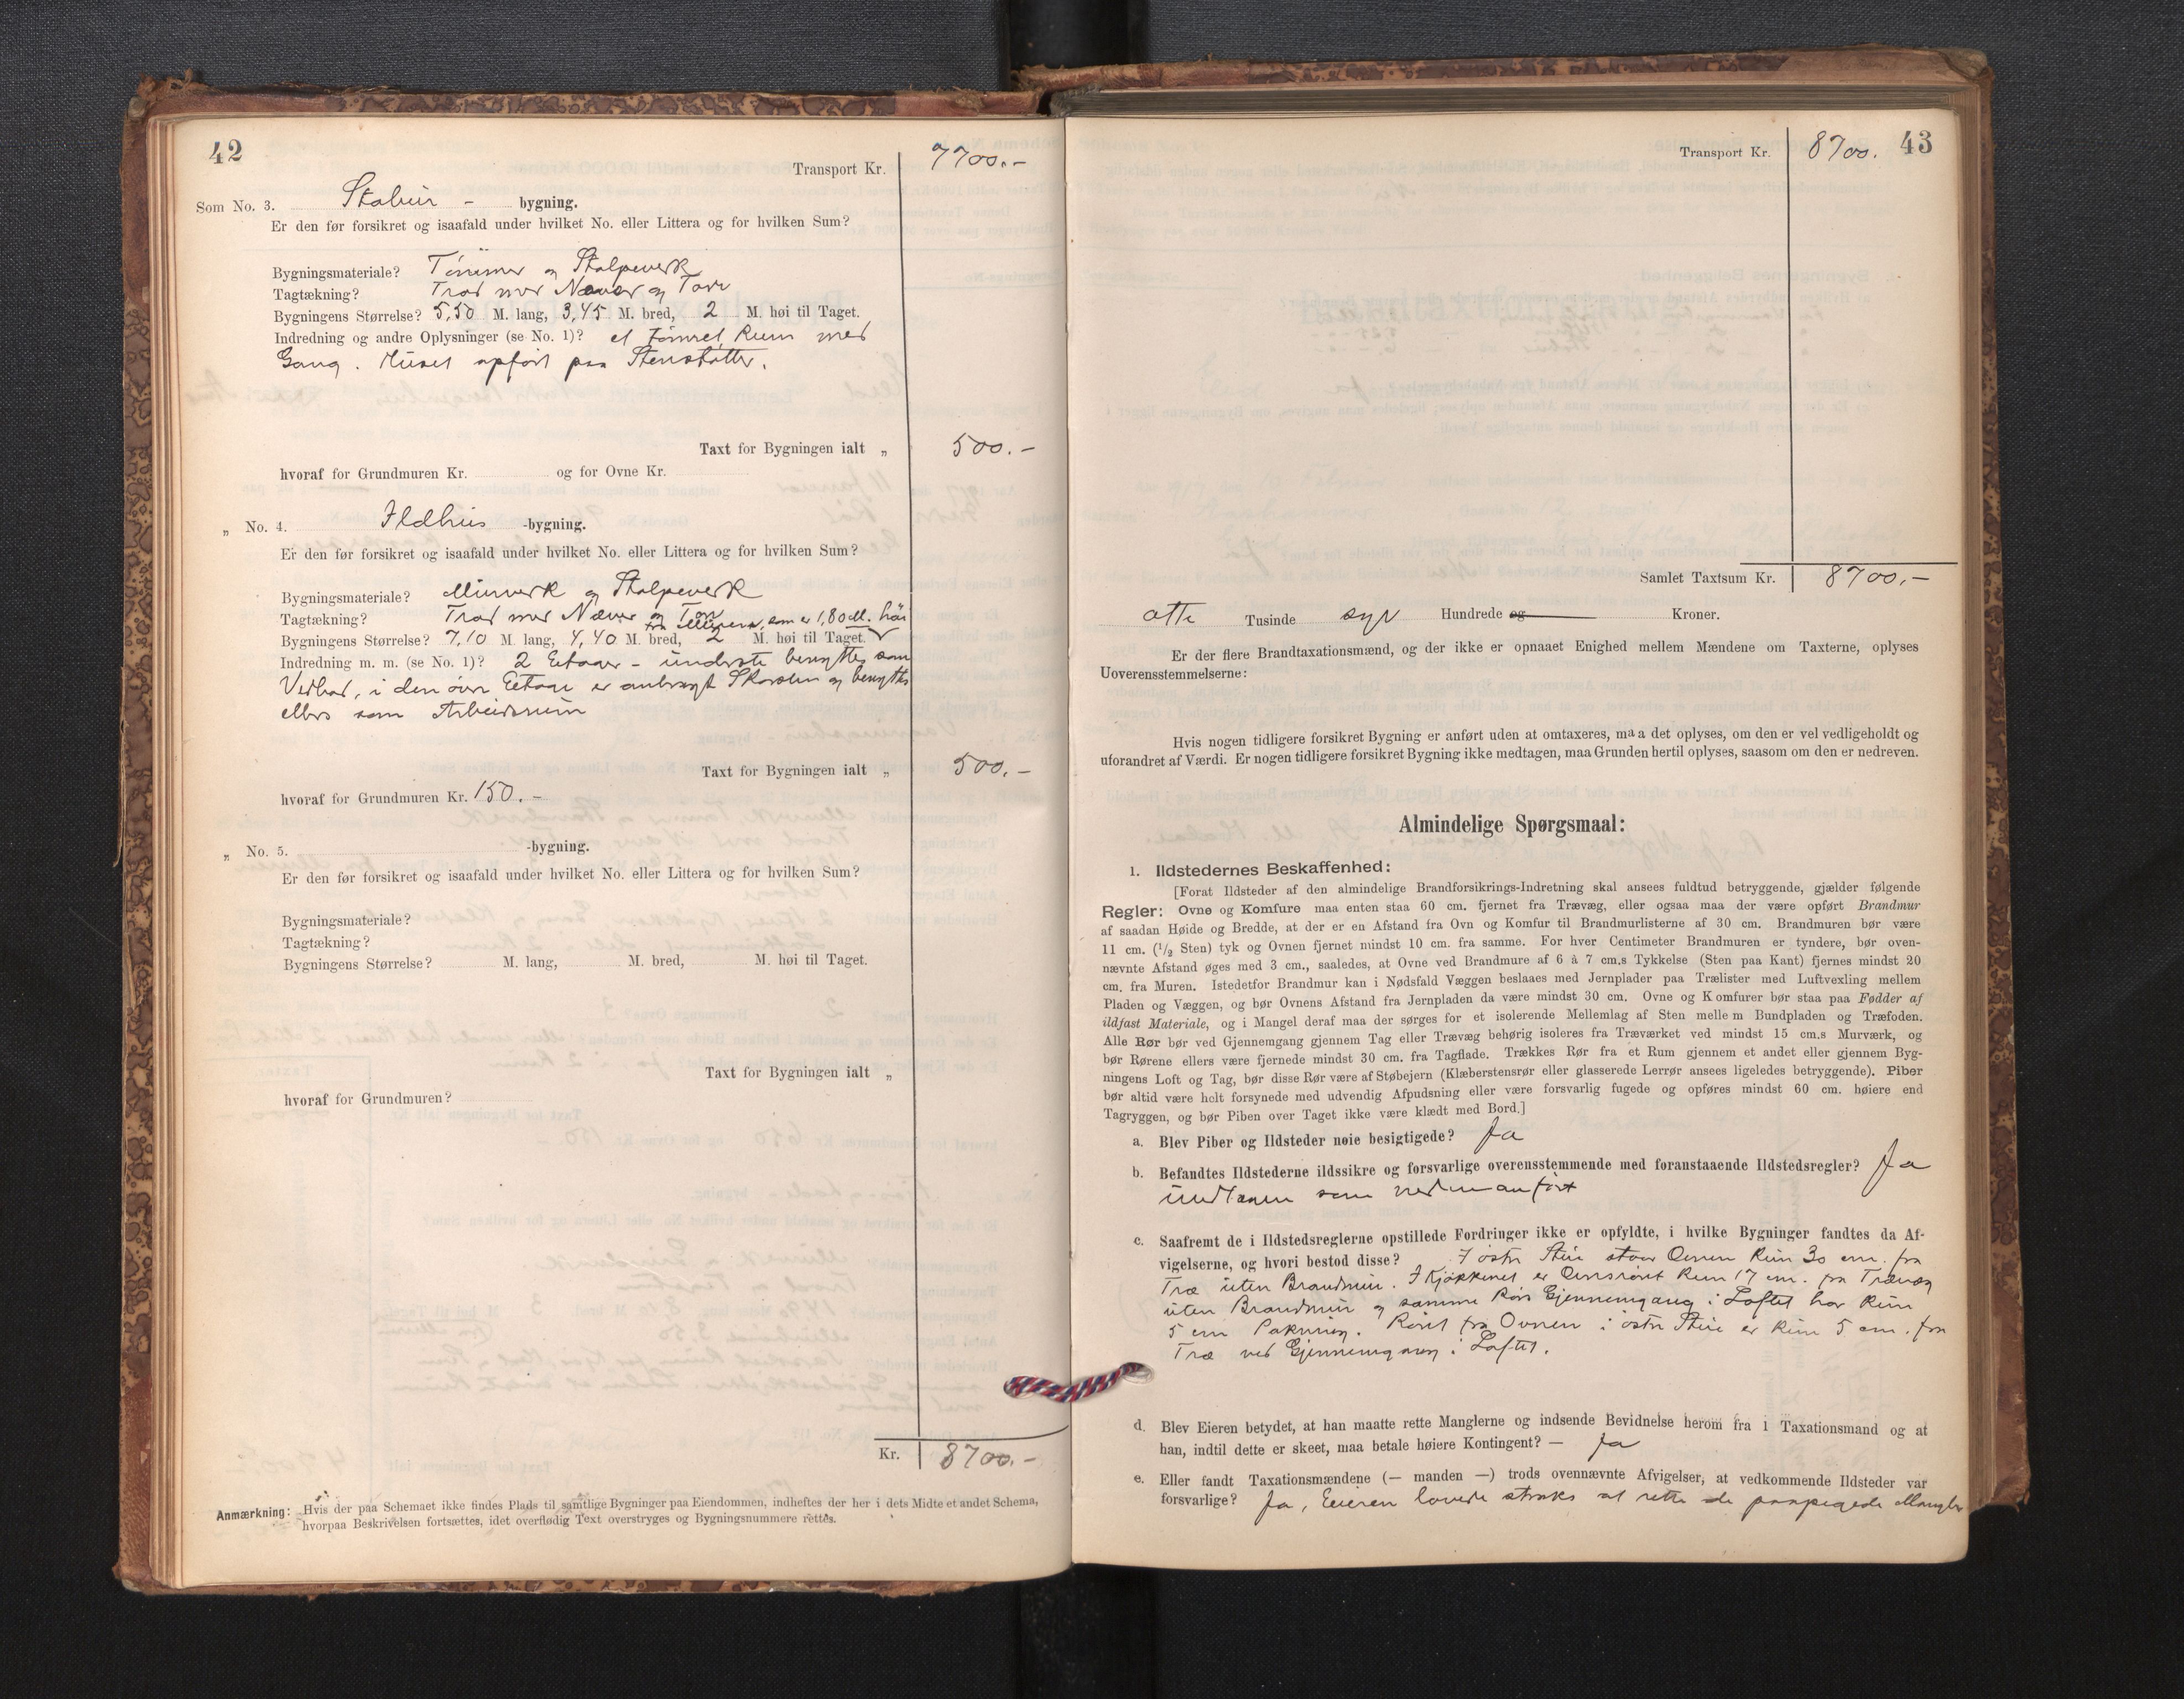 42
Transport Kr. 7700.-
Som No. 3. Stabur - bygning.
Er den før forsikret og isaafald under hvilket No. eller Littera og for hvilken Sum?
Bygningsmateriale? Tømmer og Stolpeverk
Tagtækning? Trod med Næver og Torv
Bygningens Størrelse? 5,50 M. lang, 3,45 M. bred, 2 M. høi til Taget.
Indredning og andre Oplysninger (se No. 1)? et tømret Rum med
Gang. Huset opført paa Stenstøtter.
Taxt for Bygningen ialt „ 500.-
hvoraf for Grundmuren Kr. og for Ovne Kr.
„ No. 4. Ildhus -bygning.
Er den før forsikret og isaafald under hvilket No. eller Littera og for hvilken Sum?
Bygningsmateriale? Murverk og Stolpeverk
Tagtækning? Trod med Næver og Torv
fra Muren, som er 1,80 M. høi
Bygningens Størrelse? 7,10 M. lang, 4,40 M. bred, 2 M. høi til Taget.
Indredning m. m. (se No. 1)? 2 Eetager - underste benyttes som
Vedbod, i den øvre Eetage er anbragt Skorsten og benyttes
ellers som Arbeidsrum
Taxt for Bygningen ialt „ 500.-
hvoraf for Grundmuren Kr. 150.-
„ No. 5. -bygning.
Er den før forsikret og isaafald under hvilket No. eller Littera og for hvilken Sum?
Bygningsmateriale?
Tagtækning?
Bygningens Størrelse? M. lang, M. bred, M. høi til Taget.
Taxt for Bygningen ialt „
hvoraf for Grundmuren?
Kr. 8700.-
Anmærkning: Hvis der paa Schemaet ikke findes Plads til samtlige Bygninger paa Eiendommen, indheftes der her i dets Midte et andet Schema,
hvorpaa Beskrivelsen fortsættes, idet overflødig Text overstryges og Bygningsnummere rettes.
43
Transport Kr. 8700.
Samlet Taxtsum Kr. 8700,-
otte Tusinde syv Hundrede og Kroner.
Er der flere Brandtaxationsmænd, og der ikke er opnaaet Enighed mellem Mændene om Taxterne, oplyses
Uoverensstemmelserne:
Hvis nogen tidligere forsikret Bygning er anført uden at omtaxeres, maa det oplyses, om den er vel vedligeholdt og
uforandret af Værdi. Er nogen tidligere forsikret Bygning ikke medtagen, maa Grunden hertil oplyses, saasom om den er nedreven.
Almindelige Spørgsmaal:
1. Ildstedernes Beskaffenhed:
[Forat Ildsteder af den almindelige Brandforsikrings-Indretning skal ansees fuldtud betryggende, gjælder følgende
Regler: Ovne og Komfure maa enten staa 60 cm. fjernet fra Trævæg, eller ogsaa maa der være opført Brandmur
af saadan Høide og Bredde, at der er en Afstand fra Ovn og Komfur til Brandmurlisterne af 30 cm. Brandmuren bør være
11 cm. (½ Sten) tyk og Ovnen fjernet mindst 10 cm. fra samme. For hver Centimeter Brandmuren er tyndere, bør oven-
nævnte Afstand øges med 3 cm., saaledes, at Ovne ved Brandmure af 6 à 7 cm.s Tykkelse (Sten paa Kant) fjernes mindst 20
cm. fra Muren. Istedetfor Brandmur kan i Nødsfald Væggen beslaaes med Jernplader paa Trælister med Luftvexling mellem
Pladen og Væggen, og bør Ovnens Afstand fra Jernpladen da være mindst 30 cm. Ovne og Komfurer bør staa paa Fødder af
ildfast Materiale, og i Mangel deraf maa der sørges for et isolerende Mellemlag af Sten mellem Bundpladen og Træfoden.
Alle Rør bør ved Gjennemgang gjennem Tag eller Trævæg behørig isoleres fra Træværket ved mindst 15 cm.s Murværk, og
bør Rørene ellers være fjernede mindst 30 cm. fra Tagflade. Trækkes Rør fra et Rum gjennem et andet eller gjennem Byg-
ningens Loft og Tag, bør disse Rør være af Støbejern (Klæberstensrør eller glasserede Lerrør ansees ligeledes betryggende). Piber
bør altid være helt forsynede med udvendig Afpudsning eller være forsvarlig fugede og opføres mindst 60 cm. høiere end
Tagryggen, og bør Piben over Taget ikke være klædt med Bord.]
a. Blev Piber og Ildsteder nøie besigtigede? Ja
b. Befandtes Ildstederne ildssikre og forsvarlige overensstemmende med foranstaaende Ildstedsregler? Ja
undtagen som nedenanført
c. Saafremt de i Ildstedsreglerne opstillede Fordringer ikke er opfyldte, i hvilke Bygninger fandtes da Af-
vigelserne, og hvori bestod disse? I østre Stue staar Ovnen kun 30 cm. fra
Træ uten Brandmur. I Kjøkkenet er Ovnsrøret kun 17 cm. fra Trævæg
uten Brandmur og samme Rørs Gjennemgang i Loftet har kun
5 cm Pakning. Røret fra Ovnen i østre Stue er kun 5 cm. fra
Træ ved Gjennemgang i Loftet.
d. Blev Eieren betydet, at han maatte rette Manglerne og indsende Bevidnelse herom fra 1 Taxationsmand og at
han, indtil dette er skeet, maa betale høiere Kontingent? — Ja
e. Eller fandt Taxationsmændene (— manden —) trods ovennævnte Afvigelser, at vedkommende Ildsteder var
forsvarlige? Ja, Eeieren lovede straks at rette de paapegede Mangler